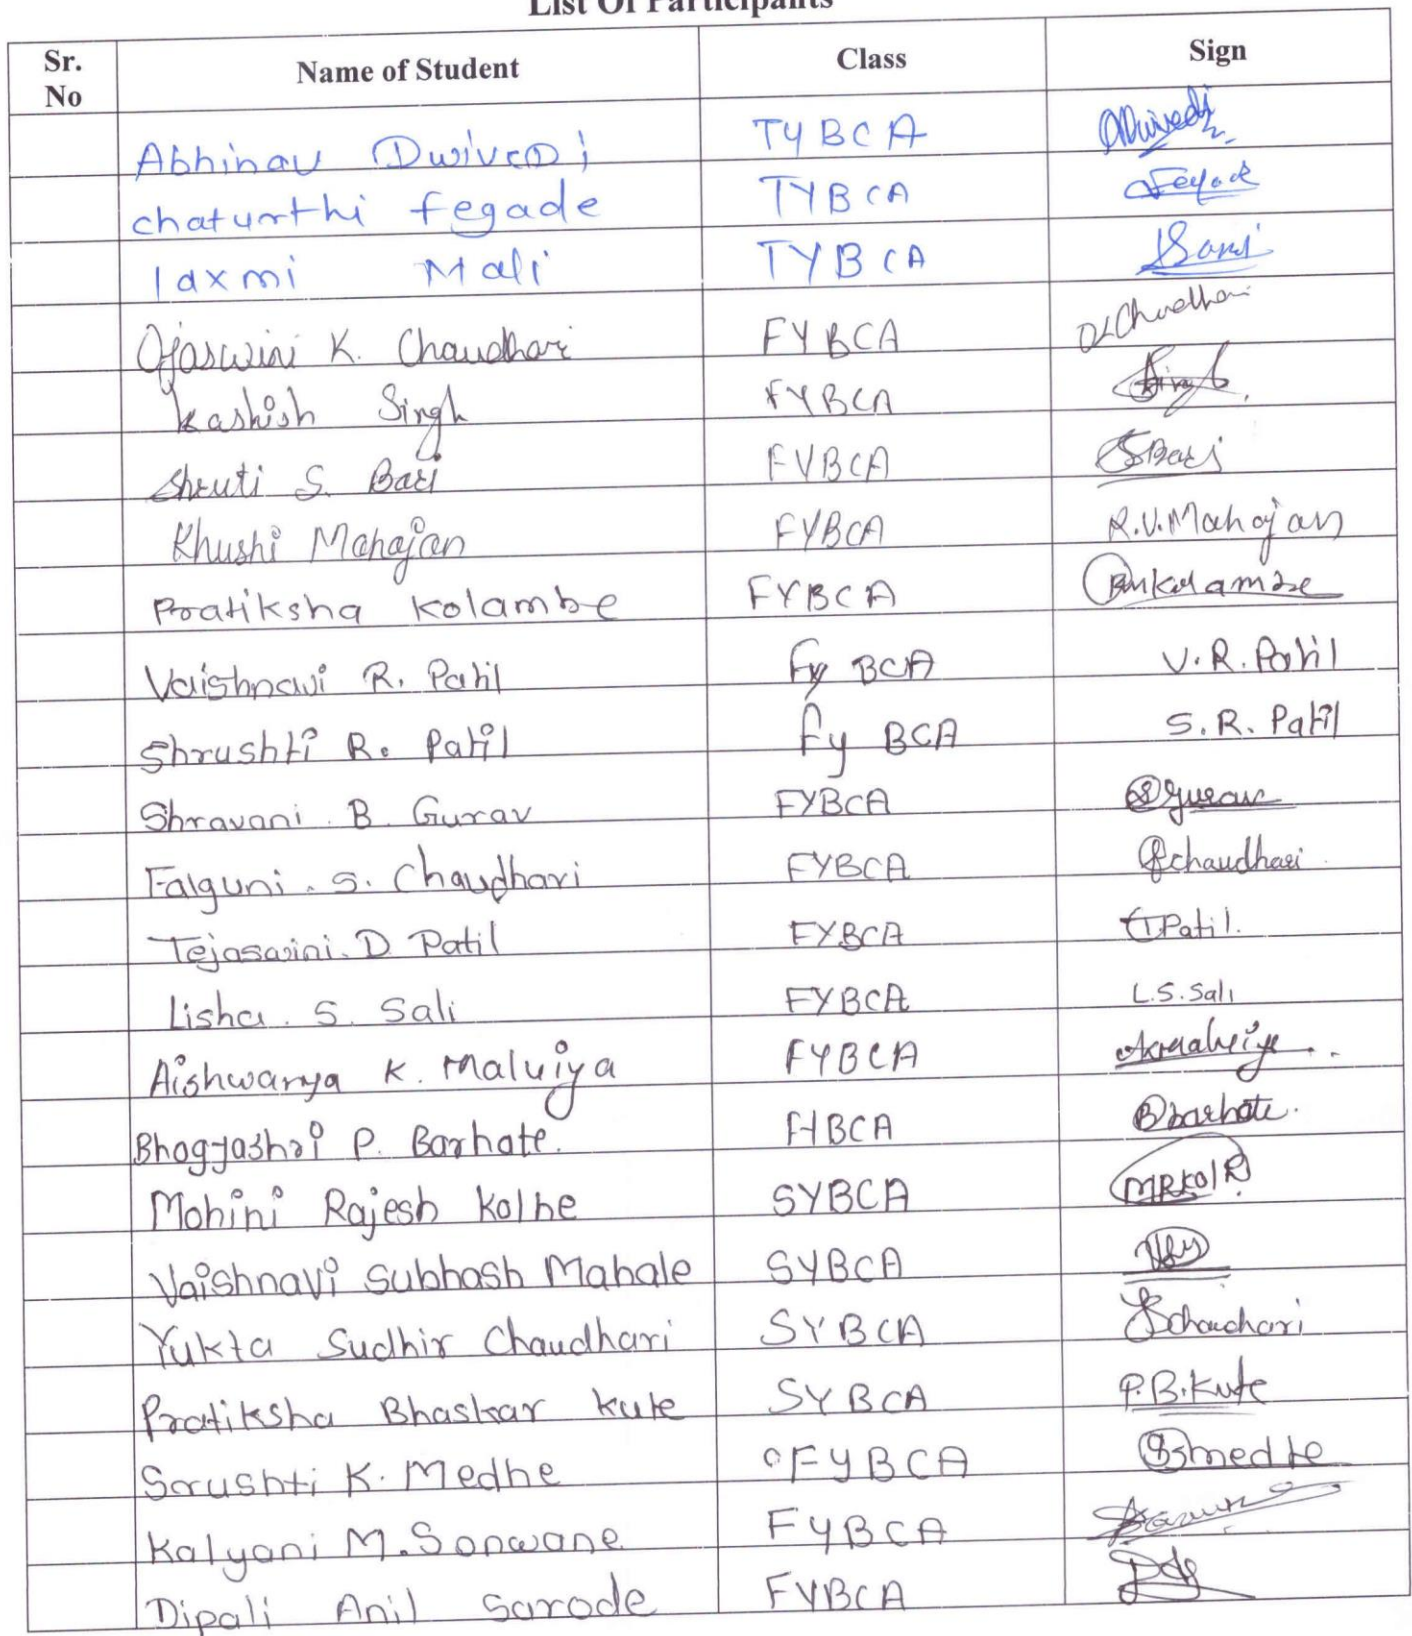 List Of Participants
Sr. No Name of Student Class Sign
Abhinav Dwivedi TYBCA ADwivedi
chaturthi fegade TYBCA Fegade
laxmi Mali TYBCA
Ojaswini K. Chaudhari FYBCA OKChaudhari
Kashish Singh FYBCA Singh
Shruti S. Bari FYBCA SBari
Khushi Mahajan FYBCA K.V.Mahajan
Pratiksha Kolambe FYBCA Pmkolambe
Vaishnavi R. Patil Fy BCA V.R.Patil
Shrushti R. Patil Fy BCA S.R.Patil
Shravani . B. Gurav FYBCA SGurav
Falguni . S. Chaudhari FYBCA Fchaudhari
Tejaswini. D Patil FYBCA TPatil.
Lisha . S. Sali FYBCA L.S.Sali
Aishwarya K. Malviya FYBCA Akmalviya
Bhagyashri P. Barhate. FYBCA Bbarhate.
Mohini Rajesh Kolhe SYBCA MRKolhe
Vaishnavi Subhash Mahale SYBCA
Yukta Sudhir Chaudhari SYBCA Ychaudhari
Pratiksha Bhaskar Kute SYBCA P.B.Kute
Srushti K. Medhe FYBCA Smedhe
Kalyani M. Sonwane FYBCA
Dipali Anil Sarode FYBCA